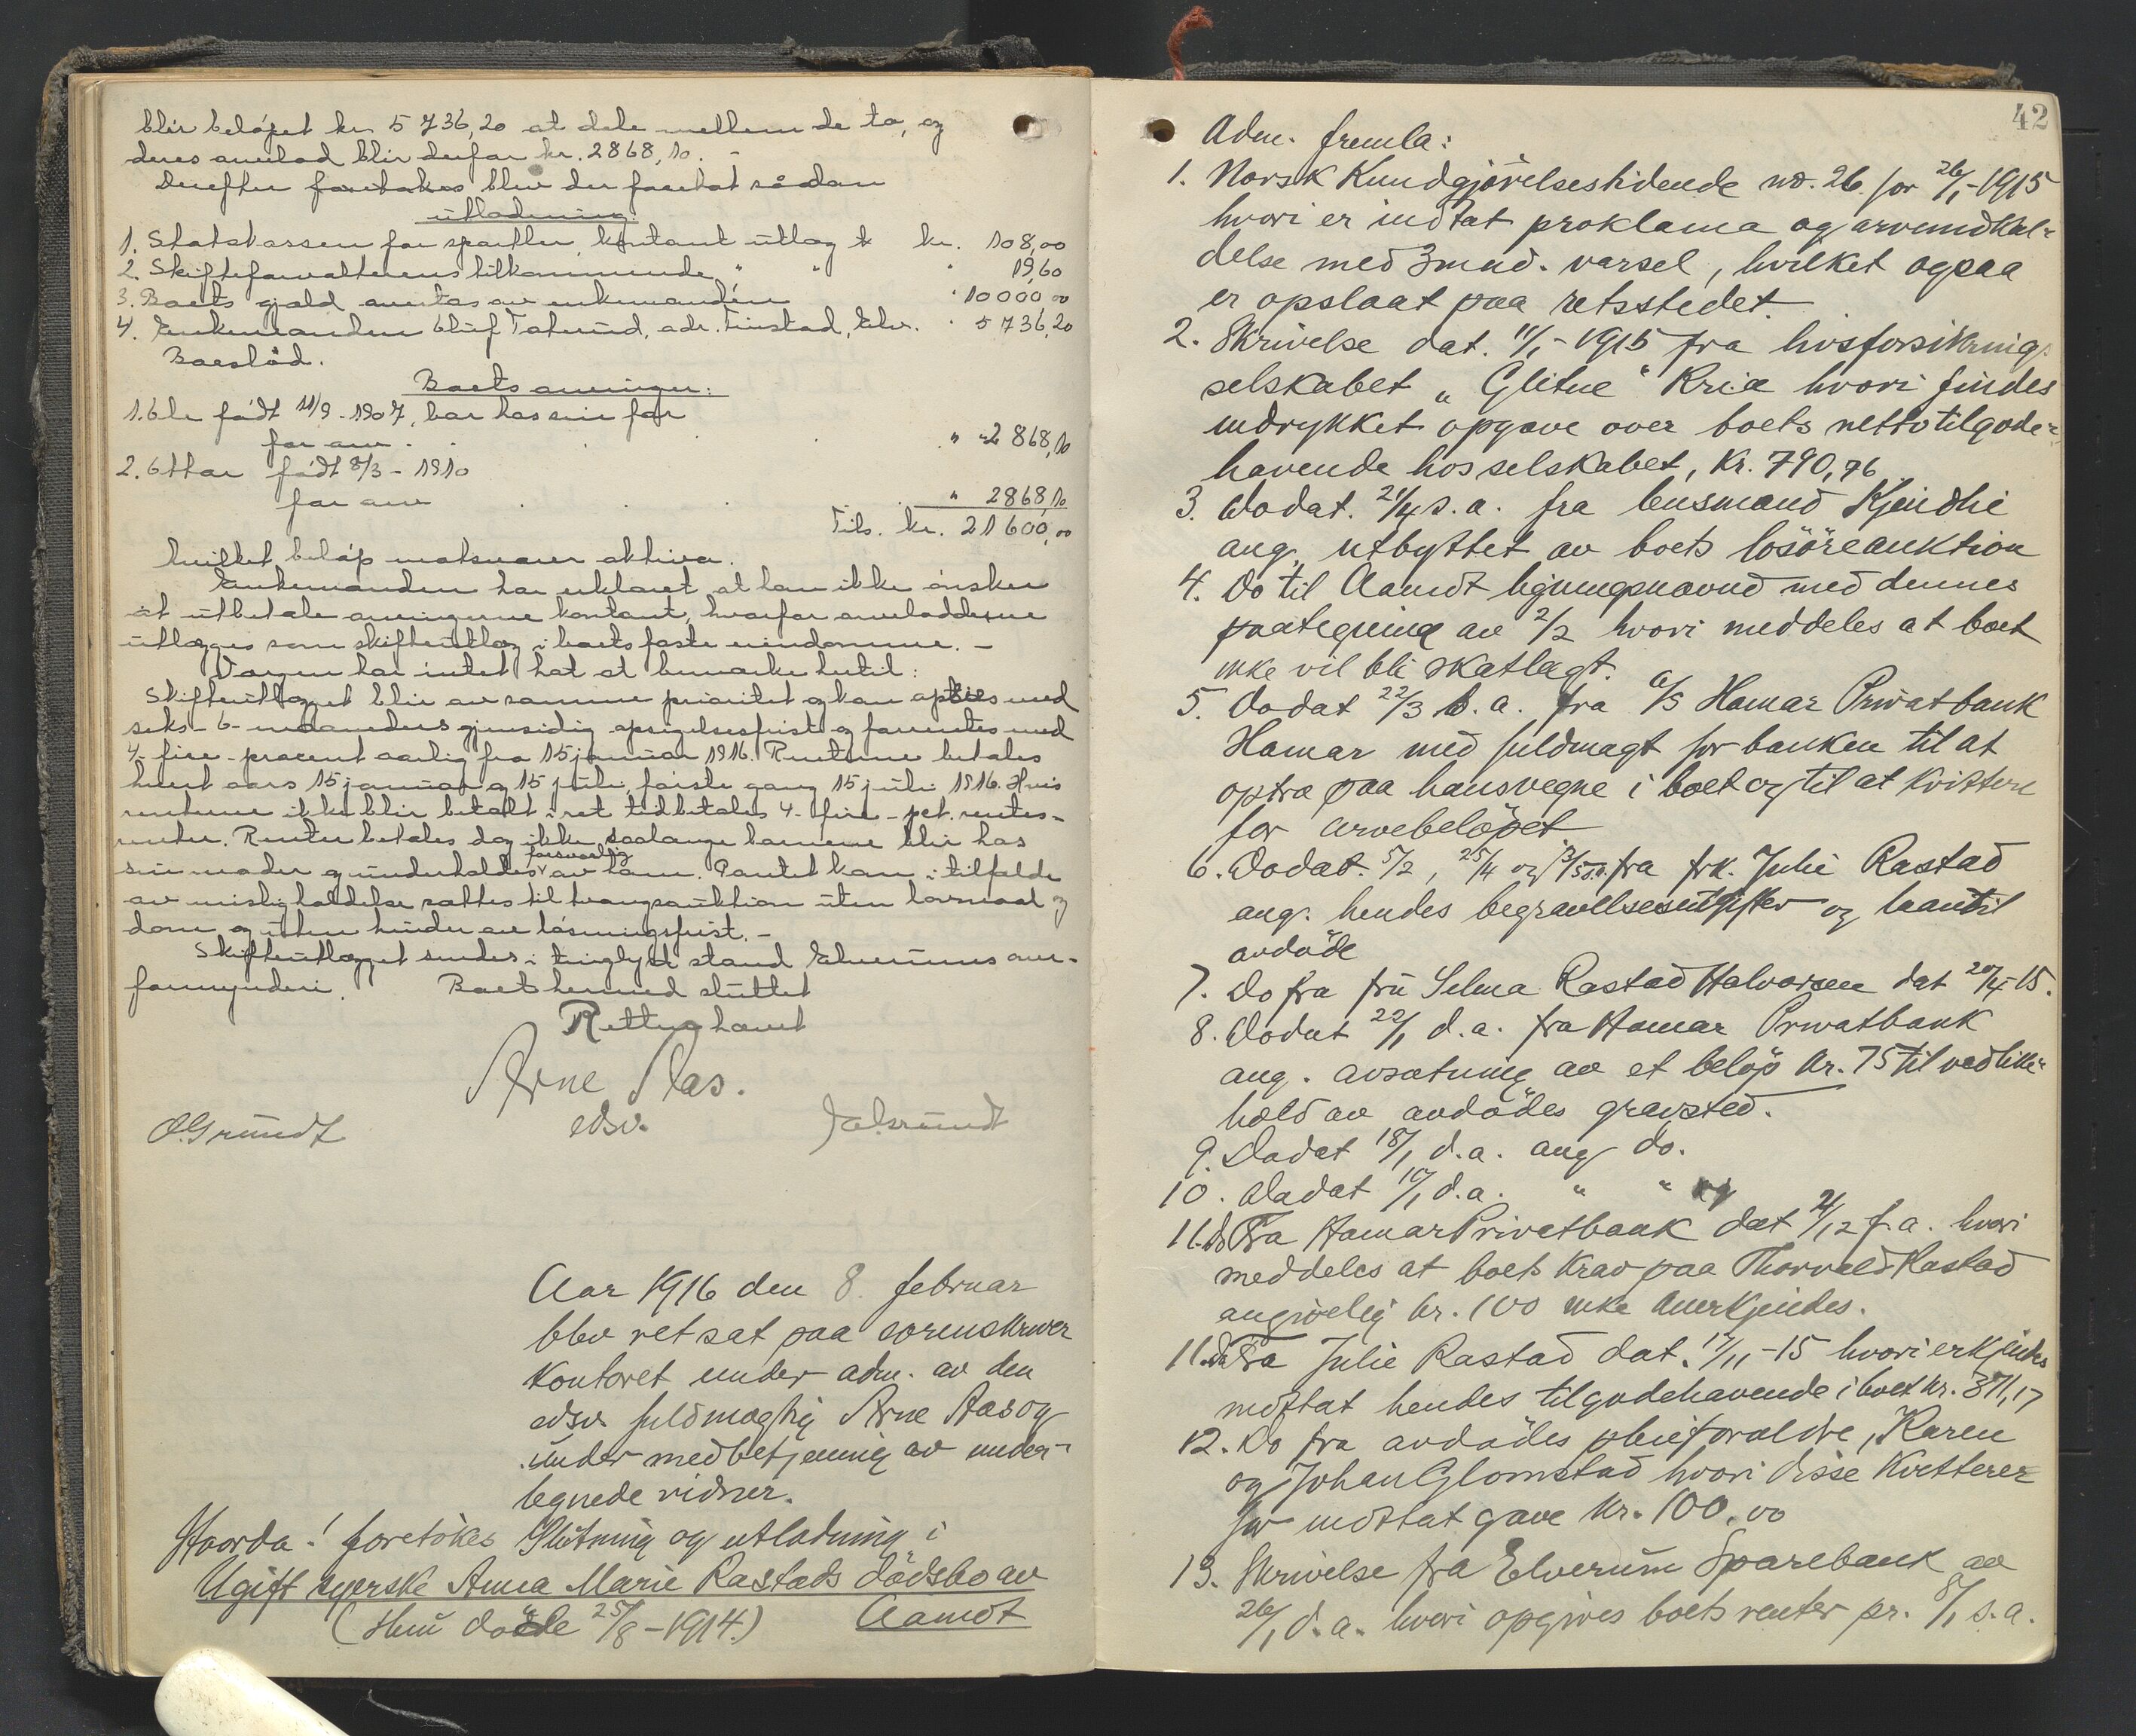 blir beløpet kr. 5 736,20 at dele mellem de to, og
deres arvelod blir derfor kr. 2868,10. -
Derefter foretokes blev der foretat sådan
utlodning:
1. Statskassen for sportler, kontant utlæg kr. 108,00
2. Skifteforvalterens tilkommende " " " 19,60
3. Boets gjæld overtas av enkemanden " 10000,00
4. Enkemanden Oluf , adr. Finstad, Elv. " 5 736,20
Boeslod.
Boets arvinger:
1. Ole født 11/9 - 1907, bor hos sin far
far arv . . . . " 2 868,10
2. Ottar født 8/3 - 1910
far arv . . . " 2868,10
Tils. kr. 21600,00
hvilket beløp motsvarer aktiva.
Enkemanden har erklæret at han ikke ønsker
at utbetale arvingerne kontant, hvorfor arveloddene
utlægges som skifteutlæg i boets faste eiendomme. -
Værgen har intet hat at bemærke hertil:
Skifteutlægget blir av samme prioritet og kan opsies med
seks - 6 - maaneders gjensidig opsigelsesfrist og forrentes med
4 - fire - procent aarlig fra 15 januar 1916. Renterne betales
hvert aars 15 januar og 15 juli, første gang 15 juli 1916. Hvis
renterne ikke blir betalt i ret tid betales 4 - fire - pct. rentes-
renter. Renter betales dog ikke saalænge barnene blir hos
sin og underholdes forsvarlig av ham. Pantet kan i tilfælde
av misligholdelse sættes til tvangsauktion uten lovmaal og
dom og uten hinder av løsningsfrist. -
Skifteutlægget sendes i tinglyst stand Elverums over-
formynderi. Boet hermed sluttet
Retten hævet
Arne Aas.
edsv.
O. Grundt

Aar 1916 den 8. februar
blev ret sat paa sorenskriver
kontoret under adm. av den
edsv. fuldmægtig Arne Aas og
under medbetjening av under-
tegnede vidner.
Hvorda! foretokes Slutning og utlodning i
Ugift syerske Anna Marie Rastads dödsbo av
(Hun döde 25/8 - 1914.) Aamot
42
Adm. fremla:
1. Norsk Kundgjörelsestidende no. 26. for 26/1 - 1915
hvori er indtat proklama og arveindkal-
delse med 3 mnd. varsel, hvilket ogsaa
er opslaat paa retsstedet.
2. Skrivelse dat. 11/1 - 1915 fra livsforsikring-
selskabet „Glitne" Kria hvori findes
indrykket opgave over boets nettotilgode-
havende hos selskabet, Kr. 790,76
3. Do dat. 21/4 s.a. fra lensmand Kjendlie
ang. utbyttet av boets lösöreauktion
4. Do til Aamot ligningsnævnd med dennes
paategning av 2/2 hvori meddeles at boet
ikke vil bli skatlagt.
5. Do dat 22/3 s.a. fra A/S Hamar Privatbank
Hamar med fuldmagt for banken til at
optræ paa hans vegne i boet og til at kvittere
for arvebelöpet
6. Do dat. 5/2, 25/4 og fra frk. Julie Rastad
ang. hendes begravelsesutgifter og laan til
avdöde
7. Do fra fru Selma Rastad Halvorsen dat 20/4-15.
8. Do dat 20/1 d.a. fra Hamar Privatbank
ang. avsætning av et belöp kr. 75 til vedlike-
hold av avdödes gravsted.
9. Do dat 18/1 d.a. ang do.
10. Do dat 10/1 d.a. " " og
11. Do Fra Hamar Privatbank dat 21/12 f.a. hvori
meddeles at boets krav paa Thorvald Rastad
angivelig kr. 100 ikke anerkjendes.
11. do Fra Julie Rastad dat. 17/11 - 15 hvori erkjendes
mottat hendes tilgodehavende i boet kr. 371,17
12. Do fra avdödes pleieforældre, Karen
og Johan Glomstad hvori disse kvitterer
for mottat gave kr. 100.00
13. Skrivelse fra Elverum Sparebank av
26/1 d.a. hvori opgives boets renter pr. 8/1 s.a.